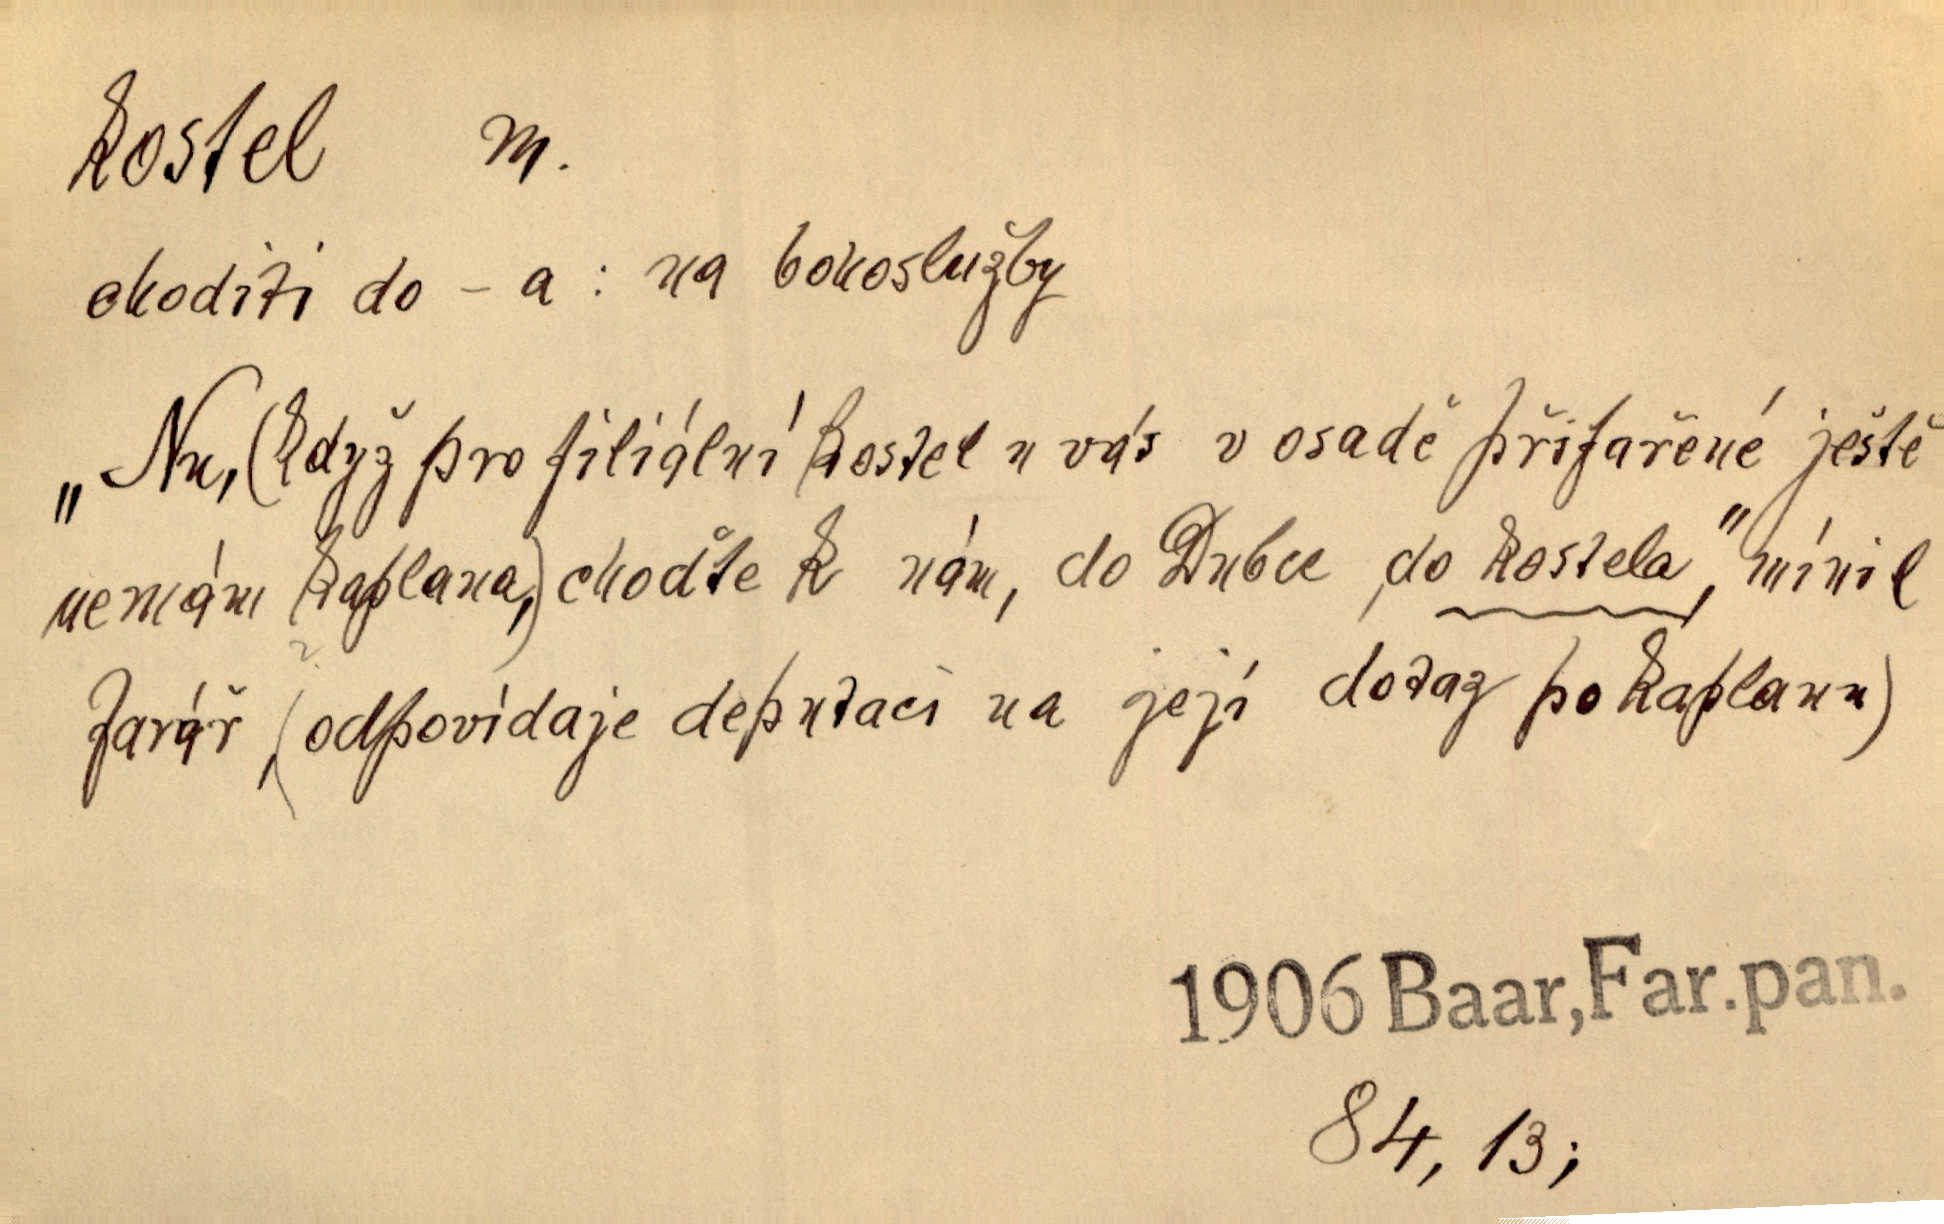 kostel m.
choditi do – a : na bohoslužby
„Nu, (když pro filiální kostel u vás v osadě přifařené ještě
nemám kaplana,) choďte k nám, do Dubce do kostela," mínil
farář, (odpovídaje deputaci na její dotaz po kaplanu)
1906 Baar, Far. pan.
84, 13;